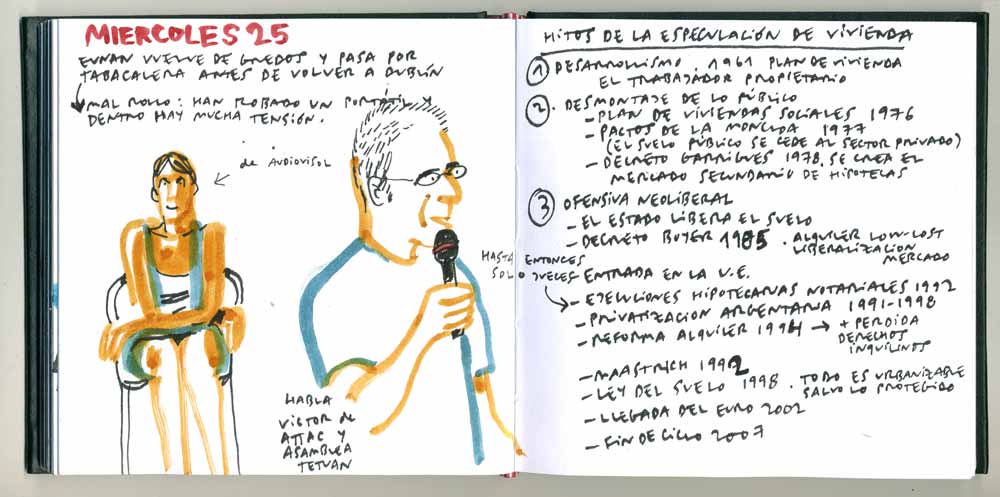 MIERCOLES 25
EUNAN VUELVE DE GREDOS Y PASA POR
TABACALERA ANTES DE VOLVER A DUBLÍN
MAL ROLLO: HAN ROBADO UN PORTATIL Y
DENTRO HAY MUCHA TENSIÓN.
de AUDIOVISOL
HABLA
VICTOR de
ATTAC Y
ASAMBLEA
TETUAN
HITOS DE LA ESPECULACIÓN DE VIVIENDA
1 DESARROLLISMO. 1961 PLAN DE VIVIENDA
EL TRABAJADOR PROPIETARIO
2. DESMONTAJE DE LO PÚBLICO
- PLAN DE VIVIENDAS SOCIALES 1976
- PACTOS DE LA MONCLOA 1977
(EL SUELO PÚBLICO SE CEDE AL SECTOR PRIVADO)
- DECRETO GARRIGUES 1978, SE CREA EL
MERCADO SECUNDARIO DE HIPOTECAS
3 OFENSIVA NEOLIBERAL
- EL ESTADO LIBERA EL SUELO
- DECRETO BOYER 1985. ALQUILER LOW-COST
LIBERALIZACIÓN
MERCADO
HASTA ENTONCES
SOLO JUECES
- ENTRADA EN LA U.E.
- EJECUCIONES HIPOTECARIAS NOTARIALES 1992
- PRIVATIZACION ARGENTARIA 1991-1998
- REFORMA ALQUILER 1994 → + PERDIDA
DERECHOS
INQUILINOS
- MAASTRICH 1992
- LEY DEL SUELO 1998. TODO ES URBANIZABLE
SALVO LO PROTEGIDO
- LLEGADA DEL EURO 2002
- FIN DE CICLO 2007